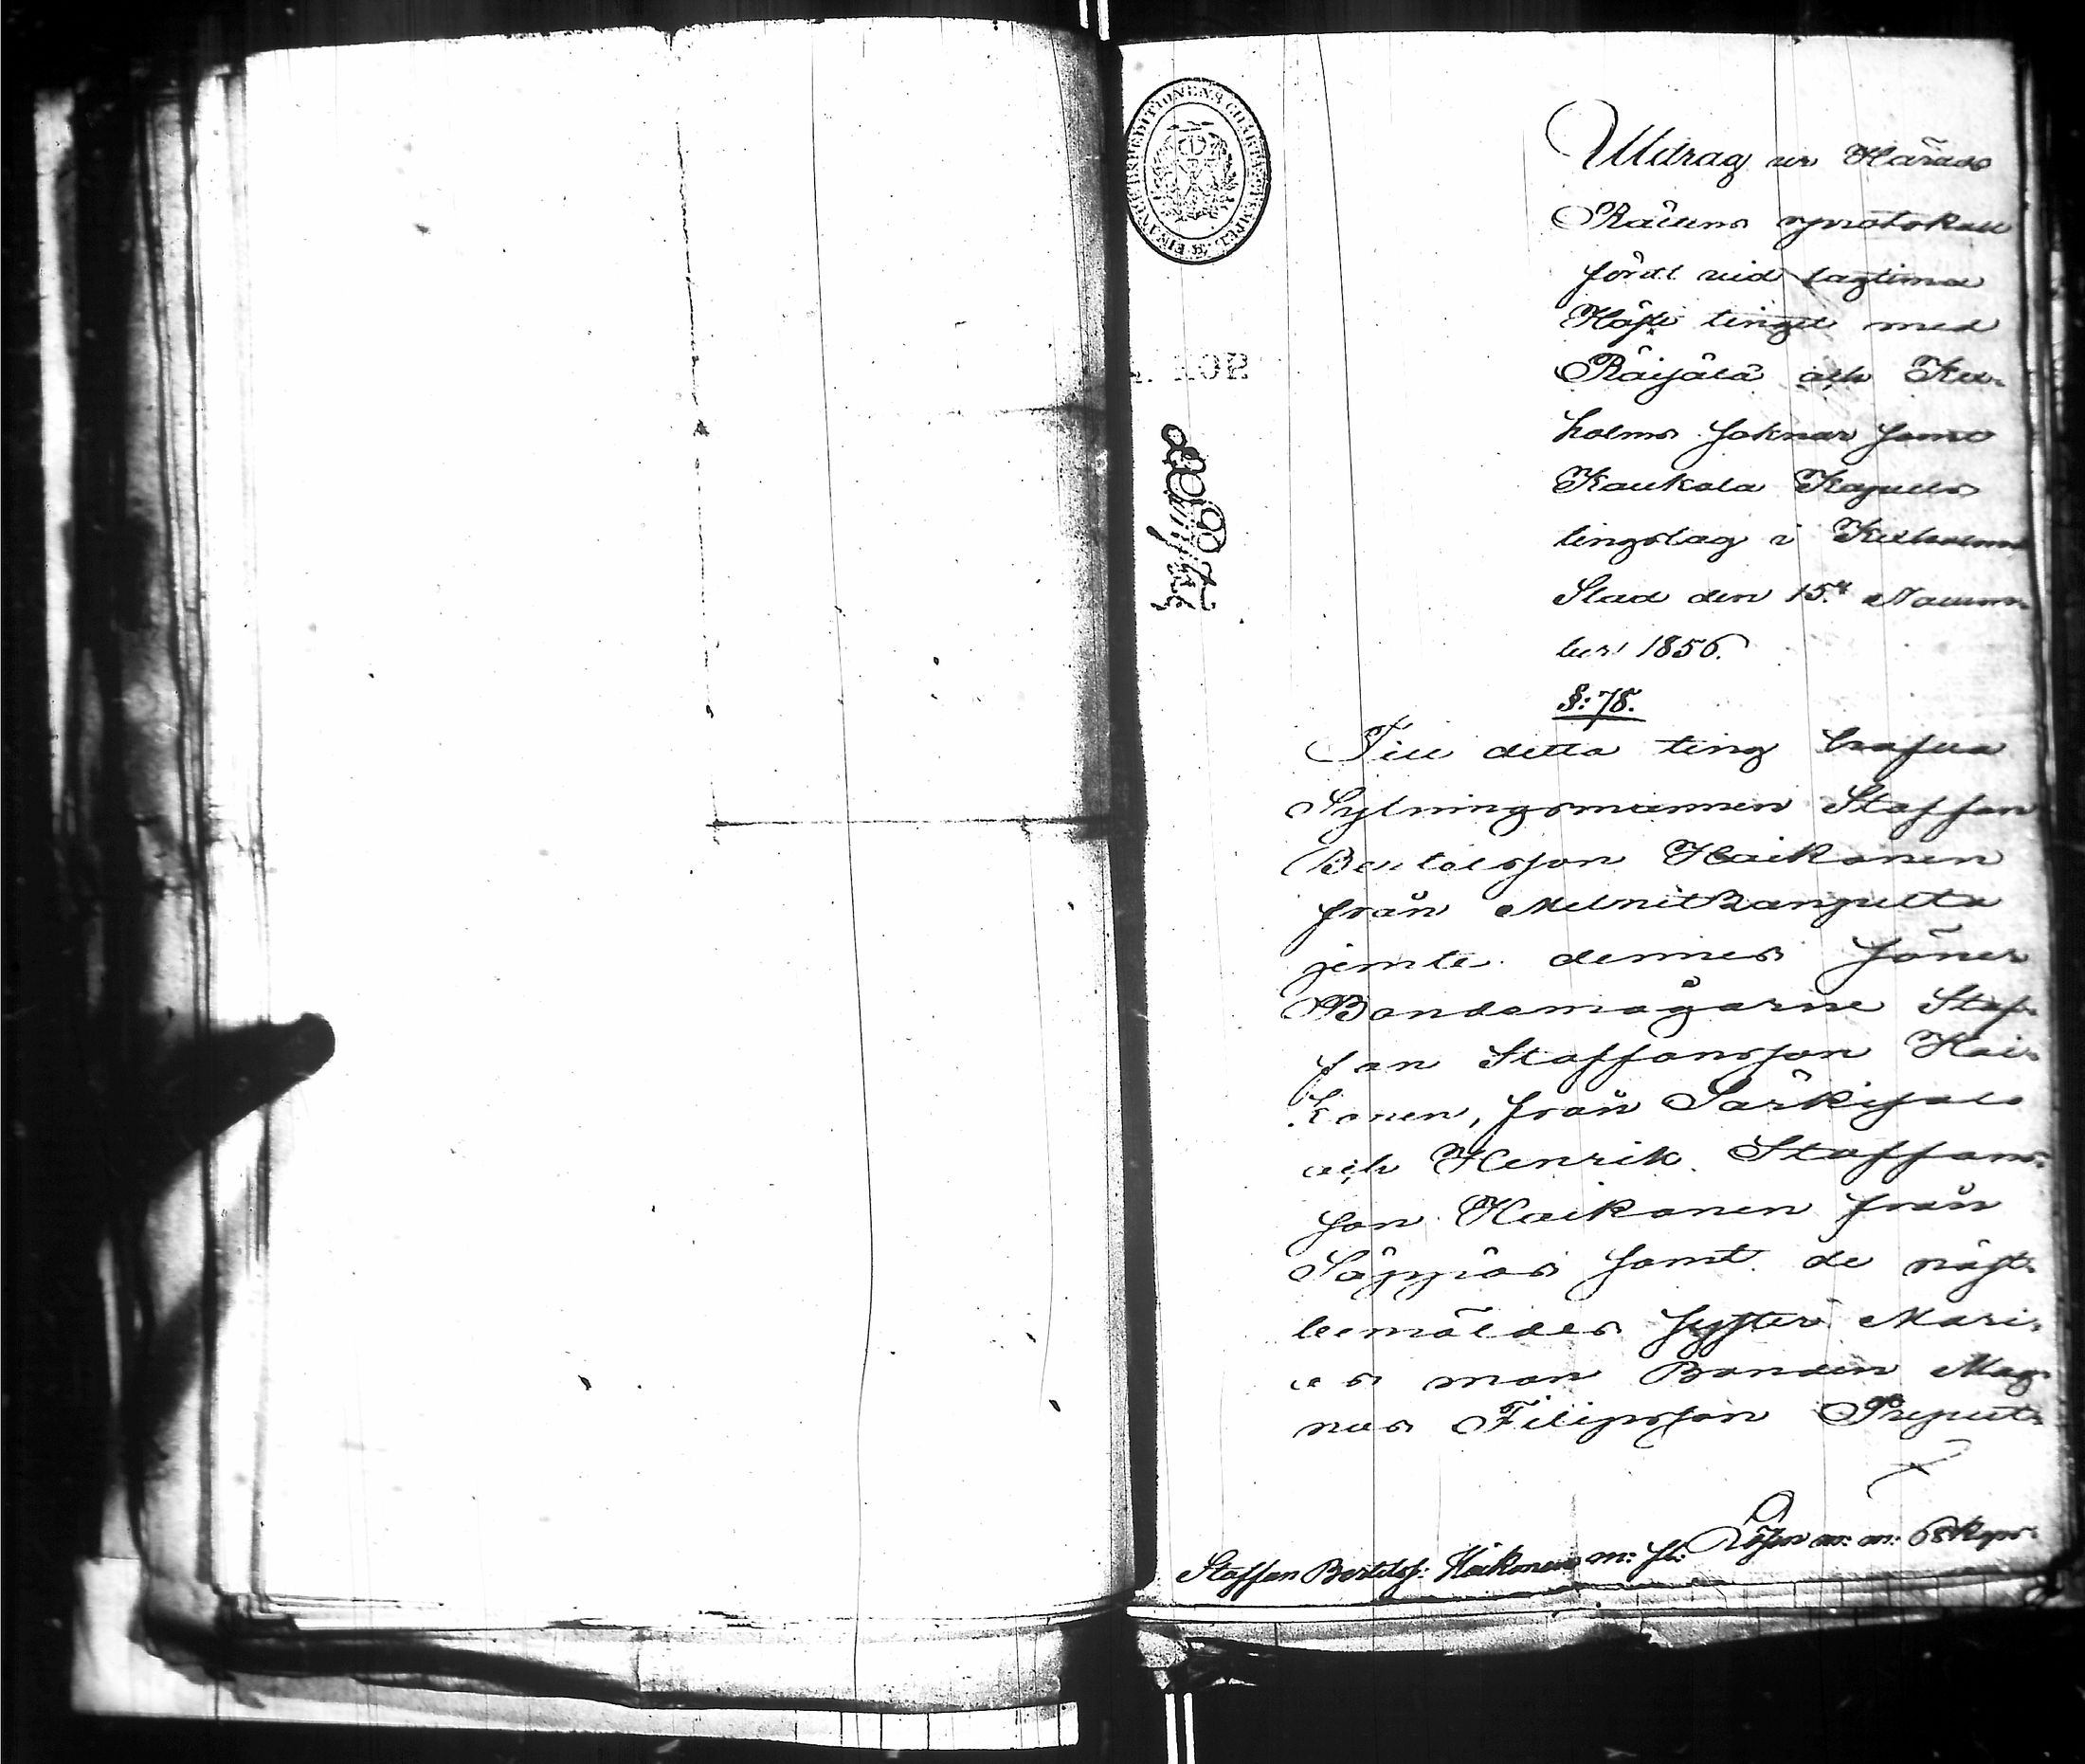 Utdrag ur Härads
Rättens protokoll
fördt vid lagtima
Höste tinget med
Räisälä och Kex-
holms soknar samt
Kaukola Kapells
tingslag i Kexholms
Stad den 15de Novem-
ber 1856.
§: 78.
Till detta ting hafva
Sytningsmannen Staffan
Bertelsson Haikonen
från
jemte dennes söner
Bondemågarne Staf-
fan Staffansson Hai-
konen, från Särkisalo
och Henrik Staffans-
son Haikonen från
Säppäs samt de näst-
bemäldes syster Mari-
as man Bonden Mag-
nus Filipsson
Staffan Bertelss: Haikonen m: fl: Lösen m: m: 68 kop: